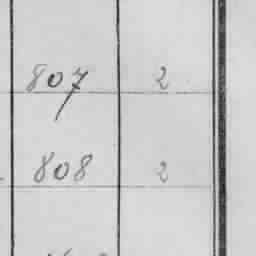 807 2
808 2